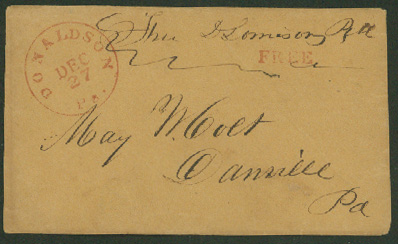 DONALDSON Pa.
DEC
27
Free J Lomison P.M
FREE
May W. Colt
Danville
Pa